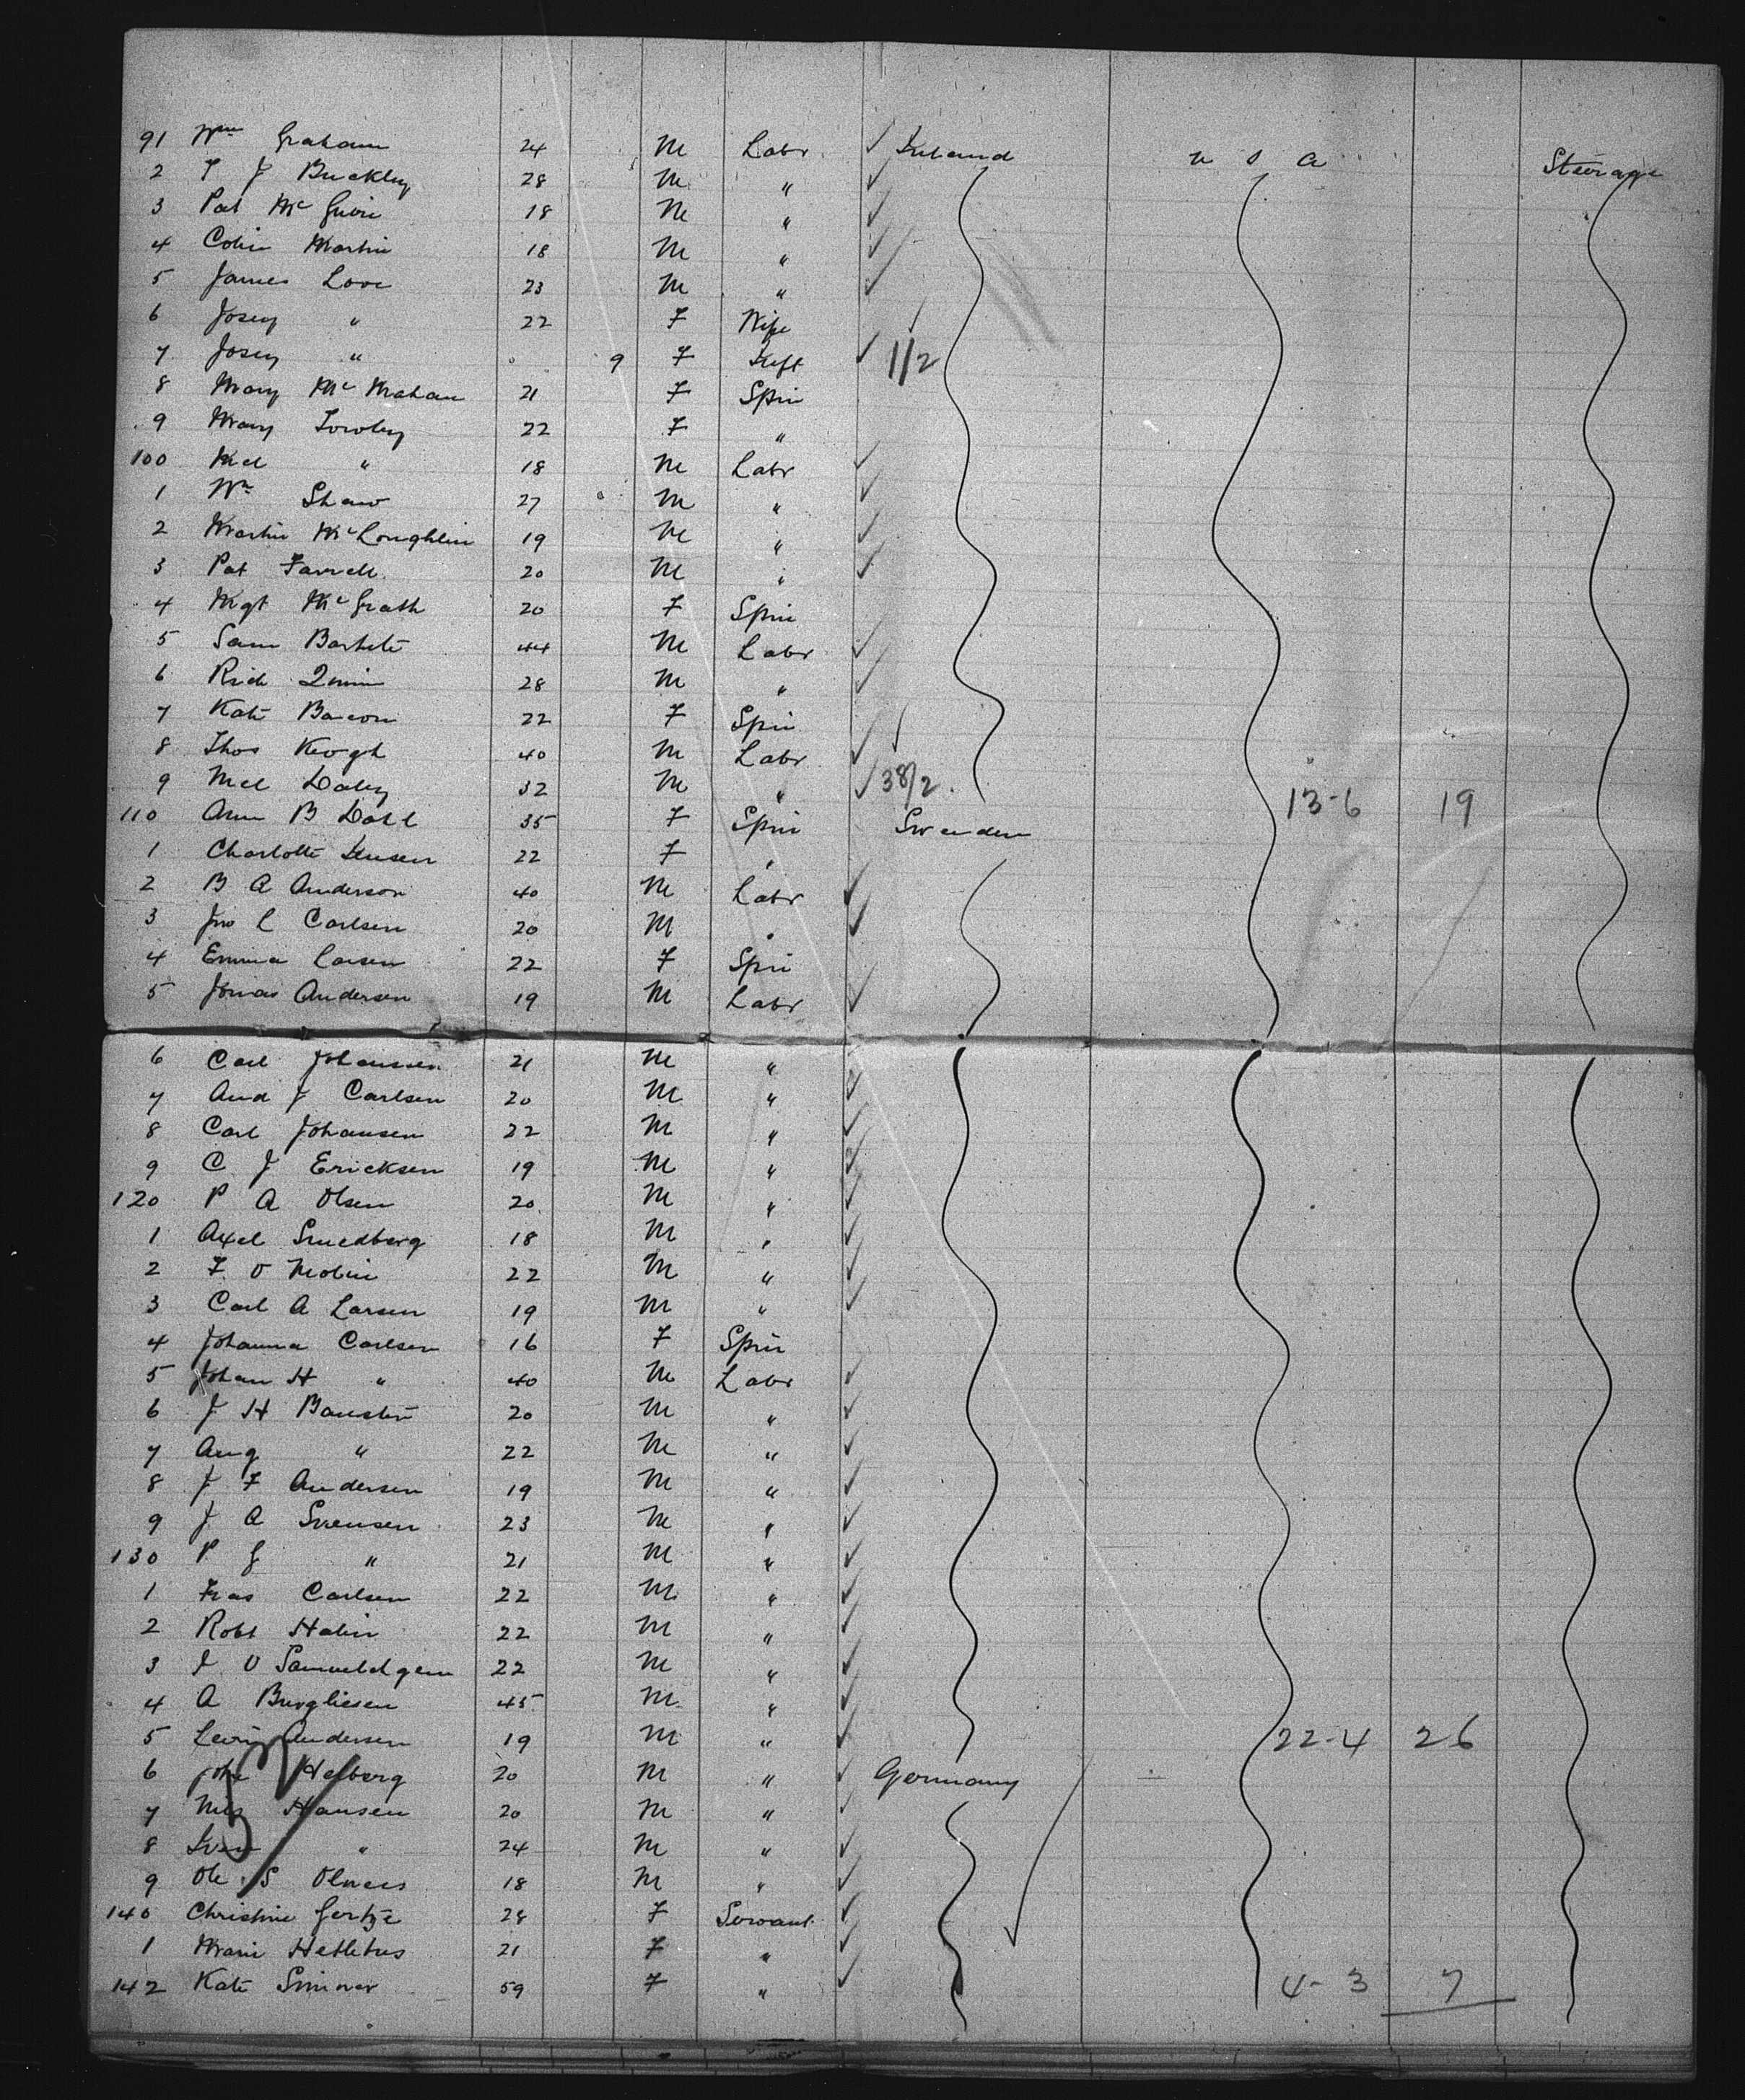 91 Wm Graham 24 M Labr Ireland U S A Steerage
2 T J Buckley 28 M "
3 Pat McGuire 18 M "
4 Colin Martin 18 M "
5 James Love 23 M "
6 Josey " 22 F Wife
7 Josey " 9 F Inft 11/2
8 Mary McMahan 21 F Spin
9 Mary Towley 22 F "
100 Mcl " 18 M Labr
1 Wm Shaw 27 M "
2 Martin McLoughlin 19 M "
3 Pat Farrell 20 M "
4 Mgt McGrath 20 F Spin
5 Sam 44 M Labr
6 Rich Quinn 28 M "
7 Kate Bacon 22 F Spin
8 Thos Keogh 40 M Labr
9 Mcl Daley 32 M " 38/2 13-6 19
110 Ann B Dahl 35 F Spin Sweeden
1 Charlotte Jensen 22 F "
2 B A Anderson 40 M Labr
3 Jno L Carlsen 20 M "
4 Emma Larsen 22 F Spin
5 Jonas Andersen 19 M Labr
6 Carl Johansen 21 M "
7 And J Carlsen 20 M "
8 Carl Johansen 22 M "
9 C J Ericksen 19 M "
120 P A Olsen 20 M "
1 Axel Smedberg 18 M "
2 F O Molin 22 M "
3 Carl A Larsen 19 M "
4 Johanna Carlsen 16 F Spin
5 Johan H " 40 M Labr
6 J H 20 M "
7 Aug " 22 M "
8 J F Andersen 19 M "
9 J A Svensen 23 M "
130 P G " 21 M "
1 Fras Carlsen 22 M "
2 Robt Halin 22 M "
3 J O 22 M "
4 A 45 M "
5 Andersen 19 M " 22-4 26
6 Helberg 20 M " Germany
7 Nils Hansen 20 M "
8 Iver " 24 M "
9 Ole S 18 M "
140 Christine Gertze 28 F Servant
1 Marie 21 F "
142 Kate 59 F " 4-3 7